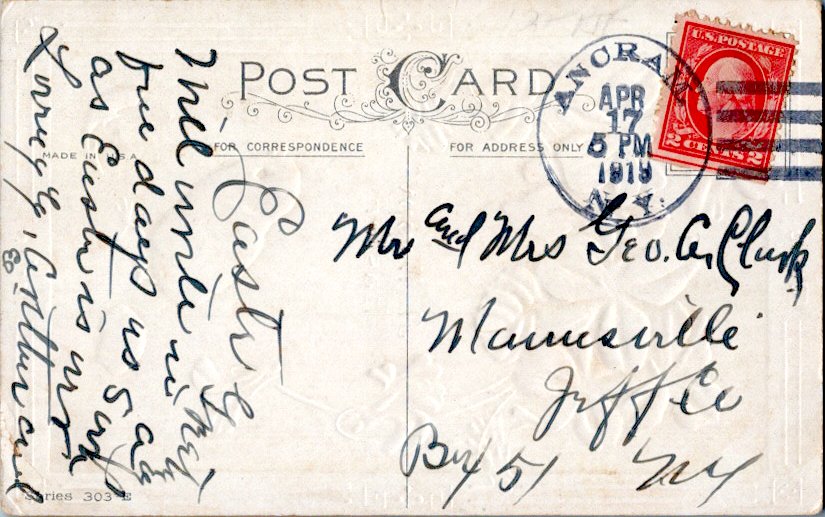 POST CARD
FOR CORRESPONDENCE
FOR ADDRESS ONLY
MADE IN U.S.A
ANCRAM
APR
17
5 PM
1919
N.Y.
U.S. POSTAGE
2 CENTS 2
Easter
Will write in
few days
as Easter is
Mr and Mrs Geo. A. Clark
Mannsville
Jeff Co
Box 51 NY
Series 303 E